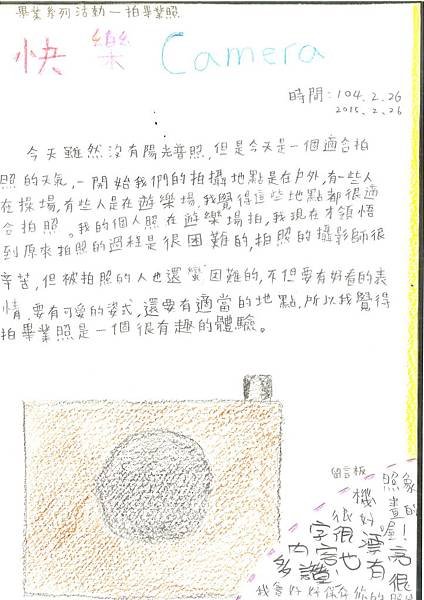 畢業系列活動—拍畢業照
快樂 Camera
時間:104.2.26
2015.2.26
今天雖然沒有陽光普照,但是今天是一個適合拍
照的天氣,一開始我們的拍攝地點是在戶外,有一些人
在操場,有些人是在遊樂場,我覺得這些地點都很適
合拍照。我的個人照在遊樂場拍,我現在才領悟
到原來拍照的過程是很困難的,拍照的攝影師很
辛苦,但被拍照的人也還蠻困難的,不但要有好看的表
情,要有可愛的姿式,還要有適當的地點,所以我覺得
拍畢業照是一個很有趣的體驗。
留言板
照象
機畫的
很好屋!
字很漂亮
內容也有很
多讚
我會好好保存你的